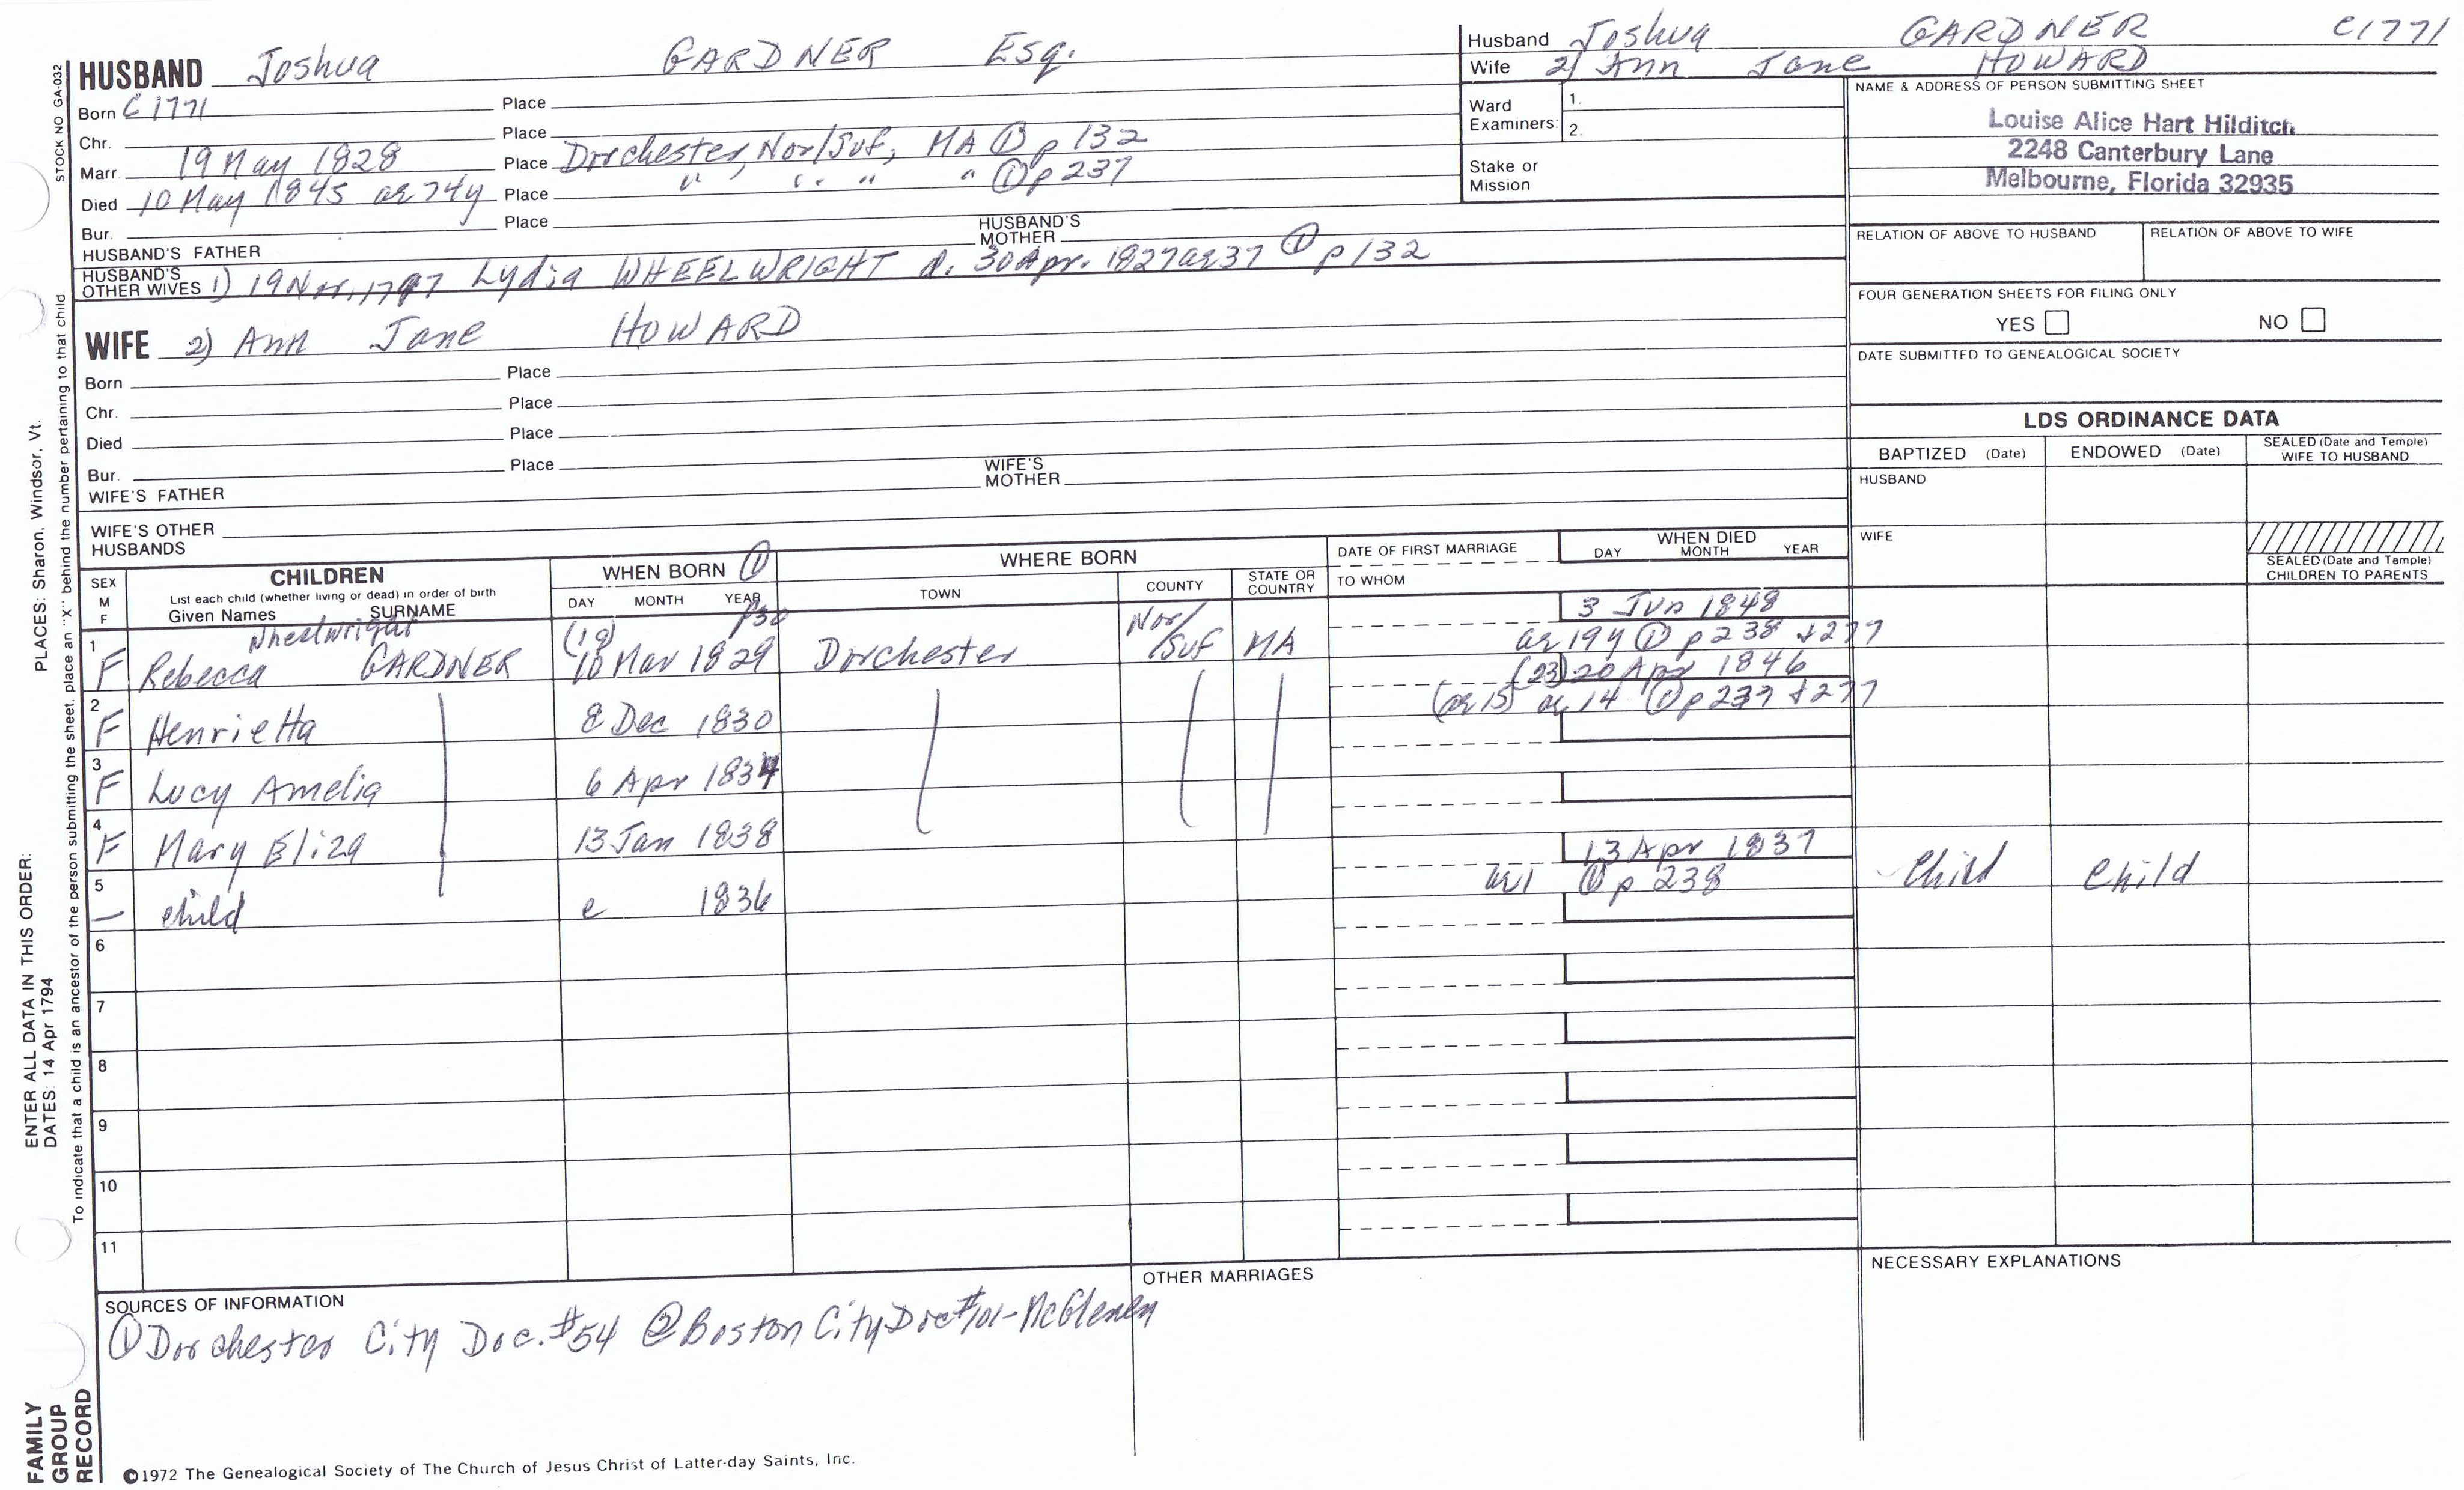 HUSBAND Joshua GARDNER Esq.
Born C 1771 Place
Chr. Place
Marr. 19 May 1828 Place Dorchester, Nor/Suf, MA ① p 132
Died 10 May 1845 ae 74y Place " " " " ① p 237
Bur. Place
HUSBAND'S FATHER HUSBAND'S MOTHER
HUSBAND'S OTHER WIVES 1) 19 Nov. 1797 Lydia WHEELWRIGHT d. 30 Apr. 1827 ae 37 ① p 132
WIFE 2) Ann Jane HOWARD
Born Place
Chr. Place
Died Place
Bur. Place
WIFE'S FATHER WIFE'S MOTHER
WIFE'S OTHER HUSBANDS
Husband Joshua GARDNER C1771
Wife 2) Ann Jane HOWARD
Ward Examiners: 1.
2.
Stake or Mission
NAME & ADDRESS OF PERSON SUBMITTING SHEET
Louise Alice Hart Hilditch
2248 Canterbury Lane
Melbourne, Florida 32935
RELATION OF ABOVE TO HUSBAND RELATION OF ABOVE TO WIFE
FOUR GENERATION SHEETS FOR FILING ONLY
YES NO
DATE SUBMITTED TO GENEALOGICAL SOCIETY
LDS ORDINANCE DATA
BAPTIZED (Date) ENDOWED (Date) SEALED (Date and Temple) WIFE TO HUSBAND
HUSBAND
WIFE
SEALED (Date and Temple) CHILDREN TO PARENTS
SEX M F
CHILDREN
List each child (whether living or dead) in order of birth
Given Names SURNAME
WHEN BORN ①
DAY MONTH YEAR
WHERE BORN
TOWN COUNTY STATE OR COUNTRY
DATE OF FIRST MARRIAGE
TO WHOM
WHEN DIED
DAY MONTH YEAR
Wheelwright (19) p30 Nor/ 3 Jun 1848
1 F Rebecca GARDNER 10 Mar 1829 Dorchester /Suf MA ae 19y ① p 238 + 277
(23) 20 Apr 1846
2 F Henrietta 8 Dec 1830 (ae 15) ae 14 ① p 237 + 277
3 F Lucy Amelia 6 Apr 1834
4 F Mary Eliza 13 Jan 1838
13 Apr 1837
5 — child c 1836 ae 1 ① p 238 Child Child
6
7
8
9
10
11
SOURCES OF INFORMATION
① Dorchester City Doc. #54 ② Boston City Doc #101-McGlenen
OTHER MARRIAGES
NECESSARY EXPLANATIONS
©1972 The Genealogical Society of The Church of Jesus Christ of Latter-day Saints, Inc.
STOCK NO GA-032
To indicate that a child is an ancestor of the person submitting the sheet, place an "X" behind the number pertaining to that child
ENTER ALL DATA IN THIS ORDER:
DATES: 14 Apr 1794
PLACES: Sharon, Windsor, Vt.
FAMILY GROUP RECORD